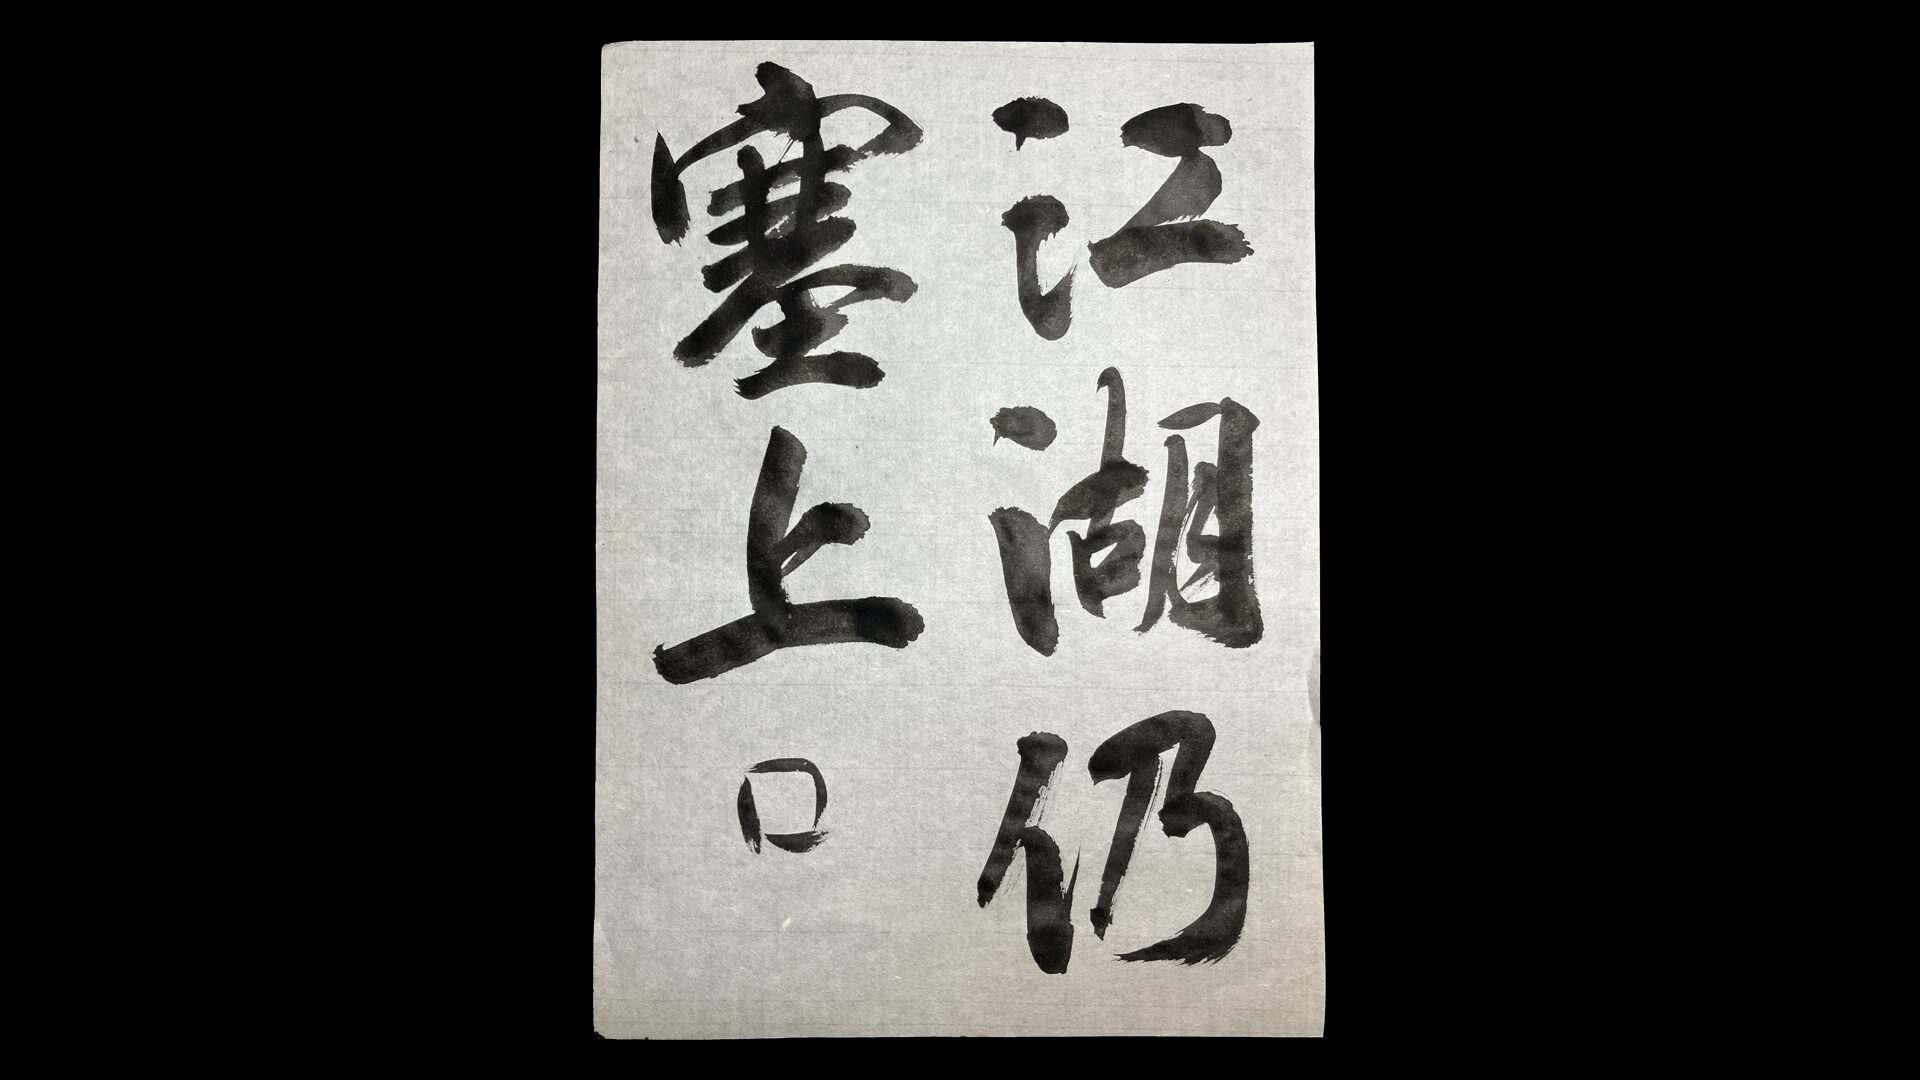 江湖仍
塞上口